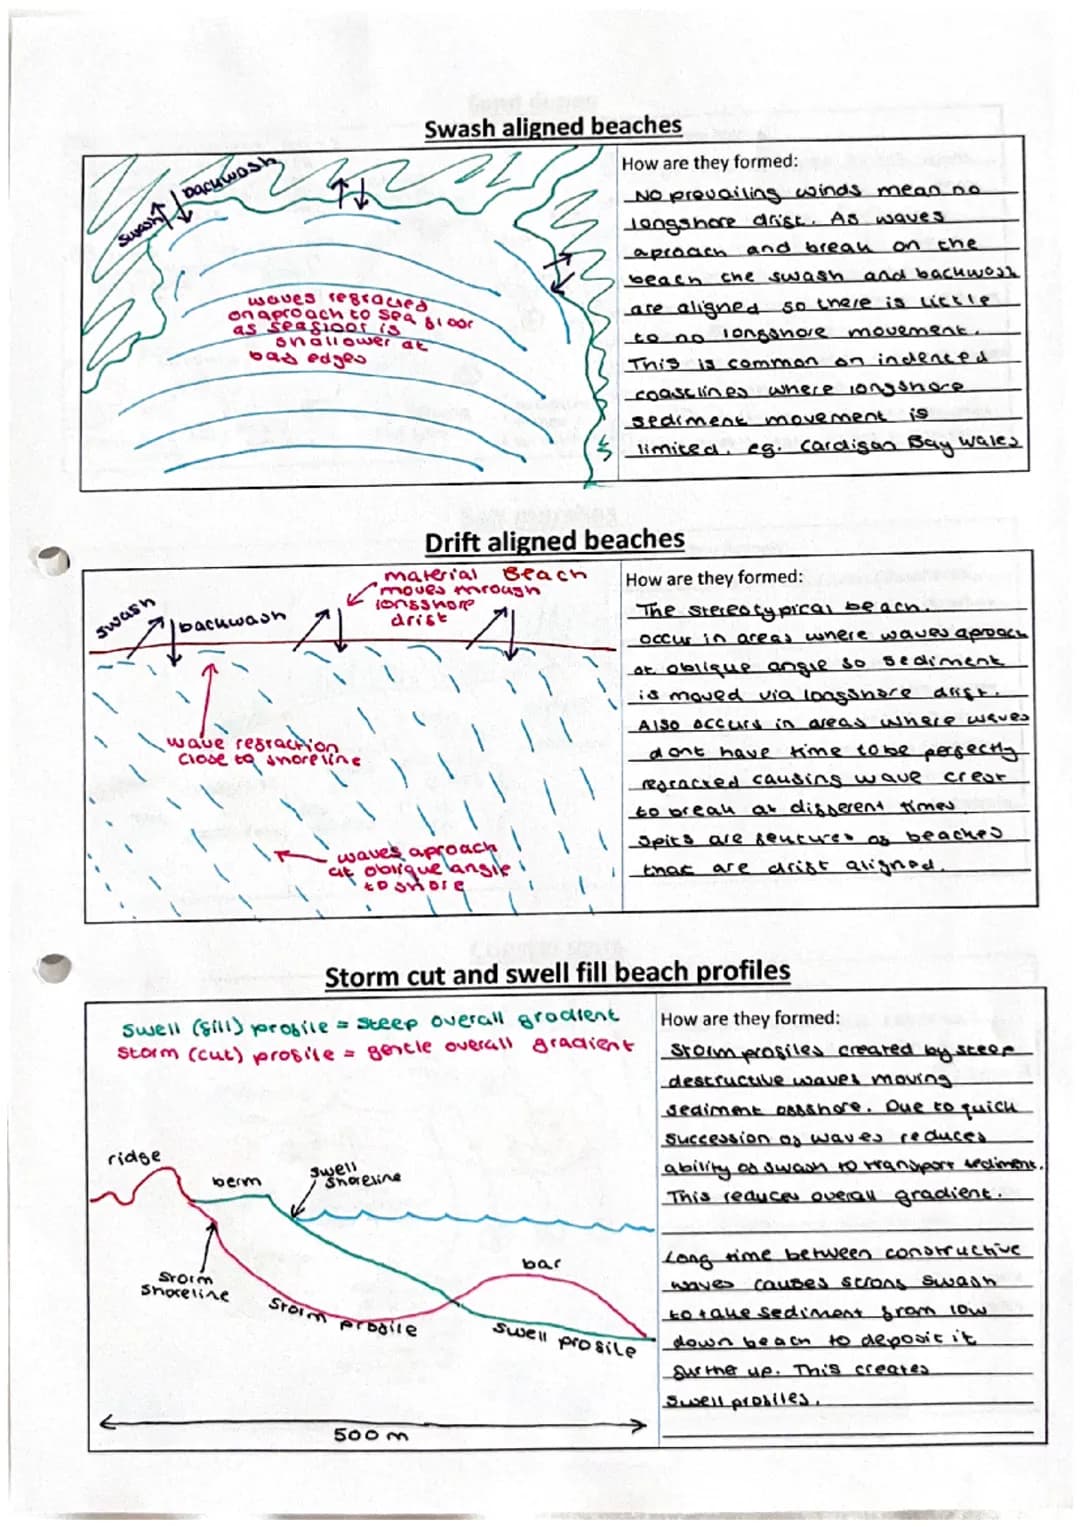 Swash aligned beaches
swash
backwash
waves refracted
on aproach to sea floor
as seafloor is
shallower at
bay edges
How are they formed:
No prevailing winds mean no
longshore drift. As waves
aproach and break on the
beach the swash and backwash
are aligned so there is little
to no longshore movement.
This is common on indented
coastlines where longshore
sediment movement is
limited. eg. Cardigan Bay Wales
Drift aligned beaches
swash
backwash
material
moves through
longshore
drift
Beach
wave refraction
close to shoreline
waves aproach
at oblique angle
to shore
How are they formed:
The stereotypical beach.
occur in areas where waves aproach
at oblique angle so sediment
is moved via longshore drift.
Also occurs in areas where waves
dont have time to be perfectly
refracted causing wave crest
to break at different times
Spits are features of beaches
that are drift aligned.
Storm cut and swell fill beach profiles
Swell (fill) profile = steep overall gradient
Storm (cut) profile = gentle overall gradient
ridge
berm
swell
shoreline
storm
shoreline
storm profile
bar
swell profile
500 m
How are they formed:
Storm profiles created by steep
destructive waves moving
sediment offshore. Due to quick
succession of waves reduces
ability of swash to transport sediment.
This reduces overall gradient.
Long time between constructive
waves causes strong swash
to take sediment from low
down beach to deposit it
further up. This creates
swell profiles.